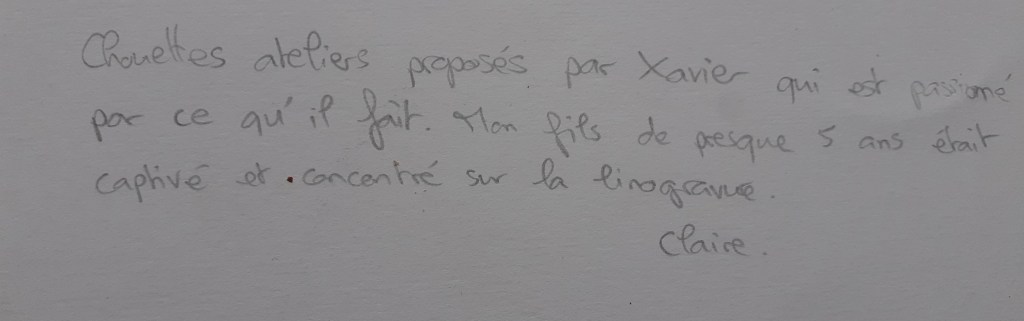 Chouettes ateliers proposés par Xavier qui est passioné
par ce qu'il fait. Mon fils de presque 5 ans était
captivé et concentré sur la linogravure.
Claire.